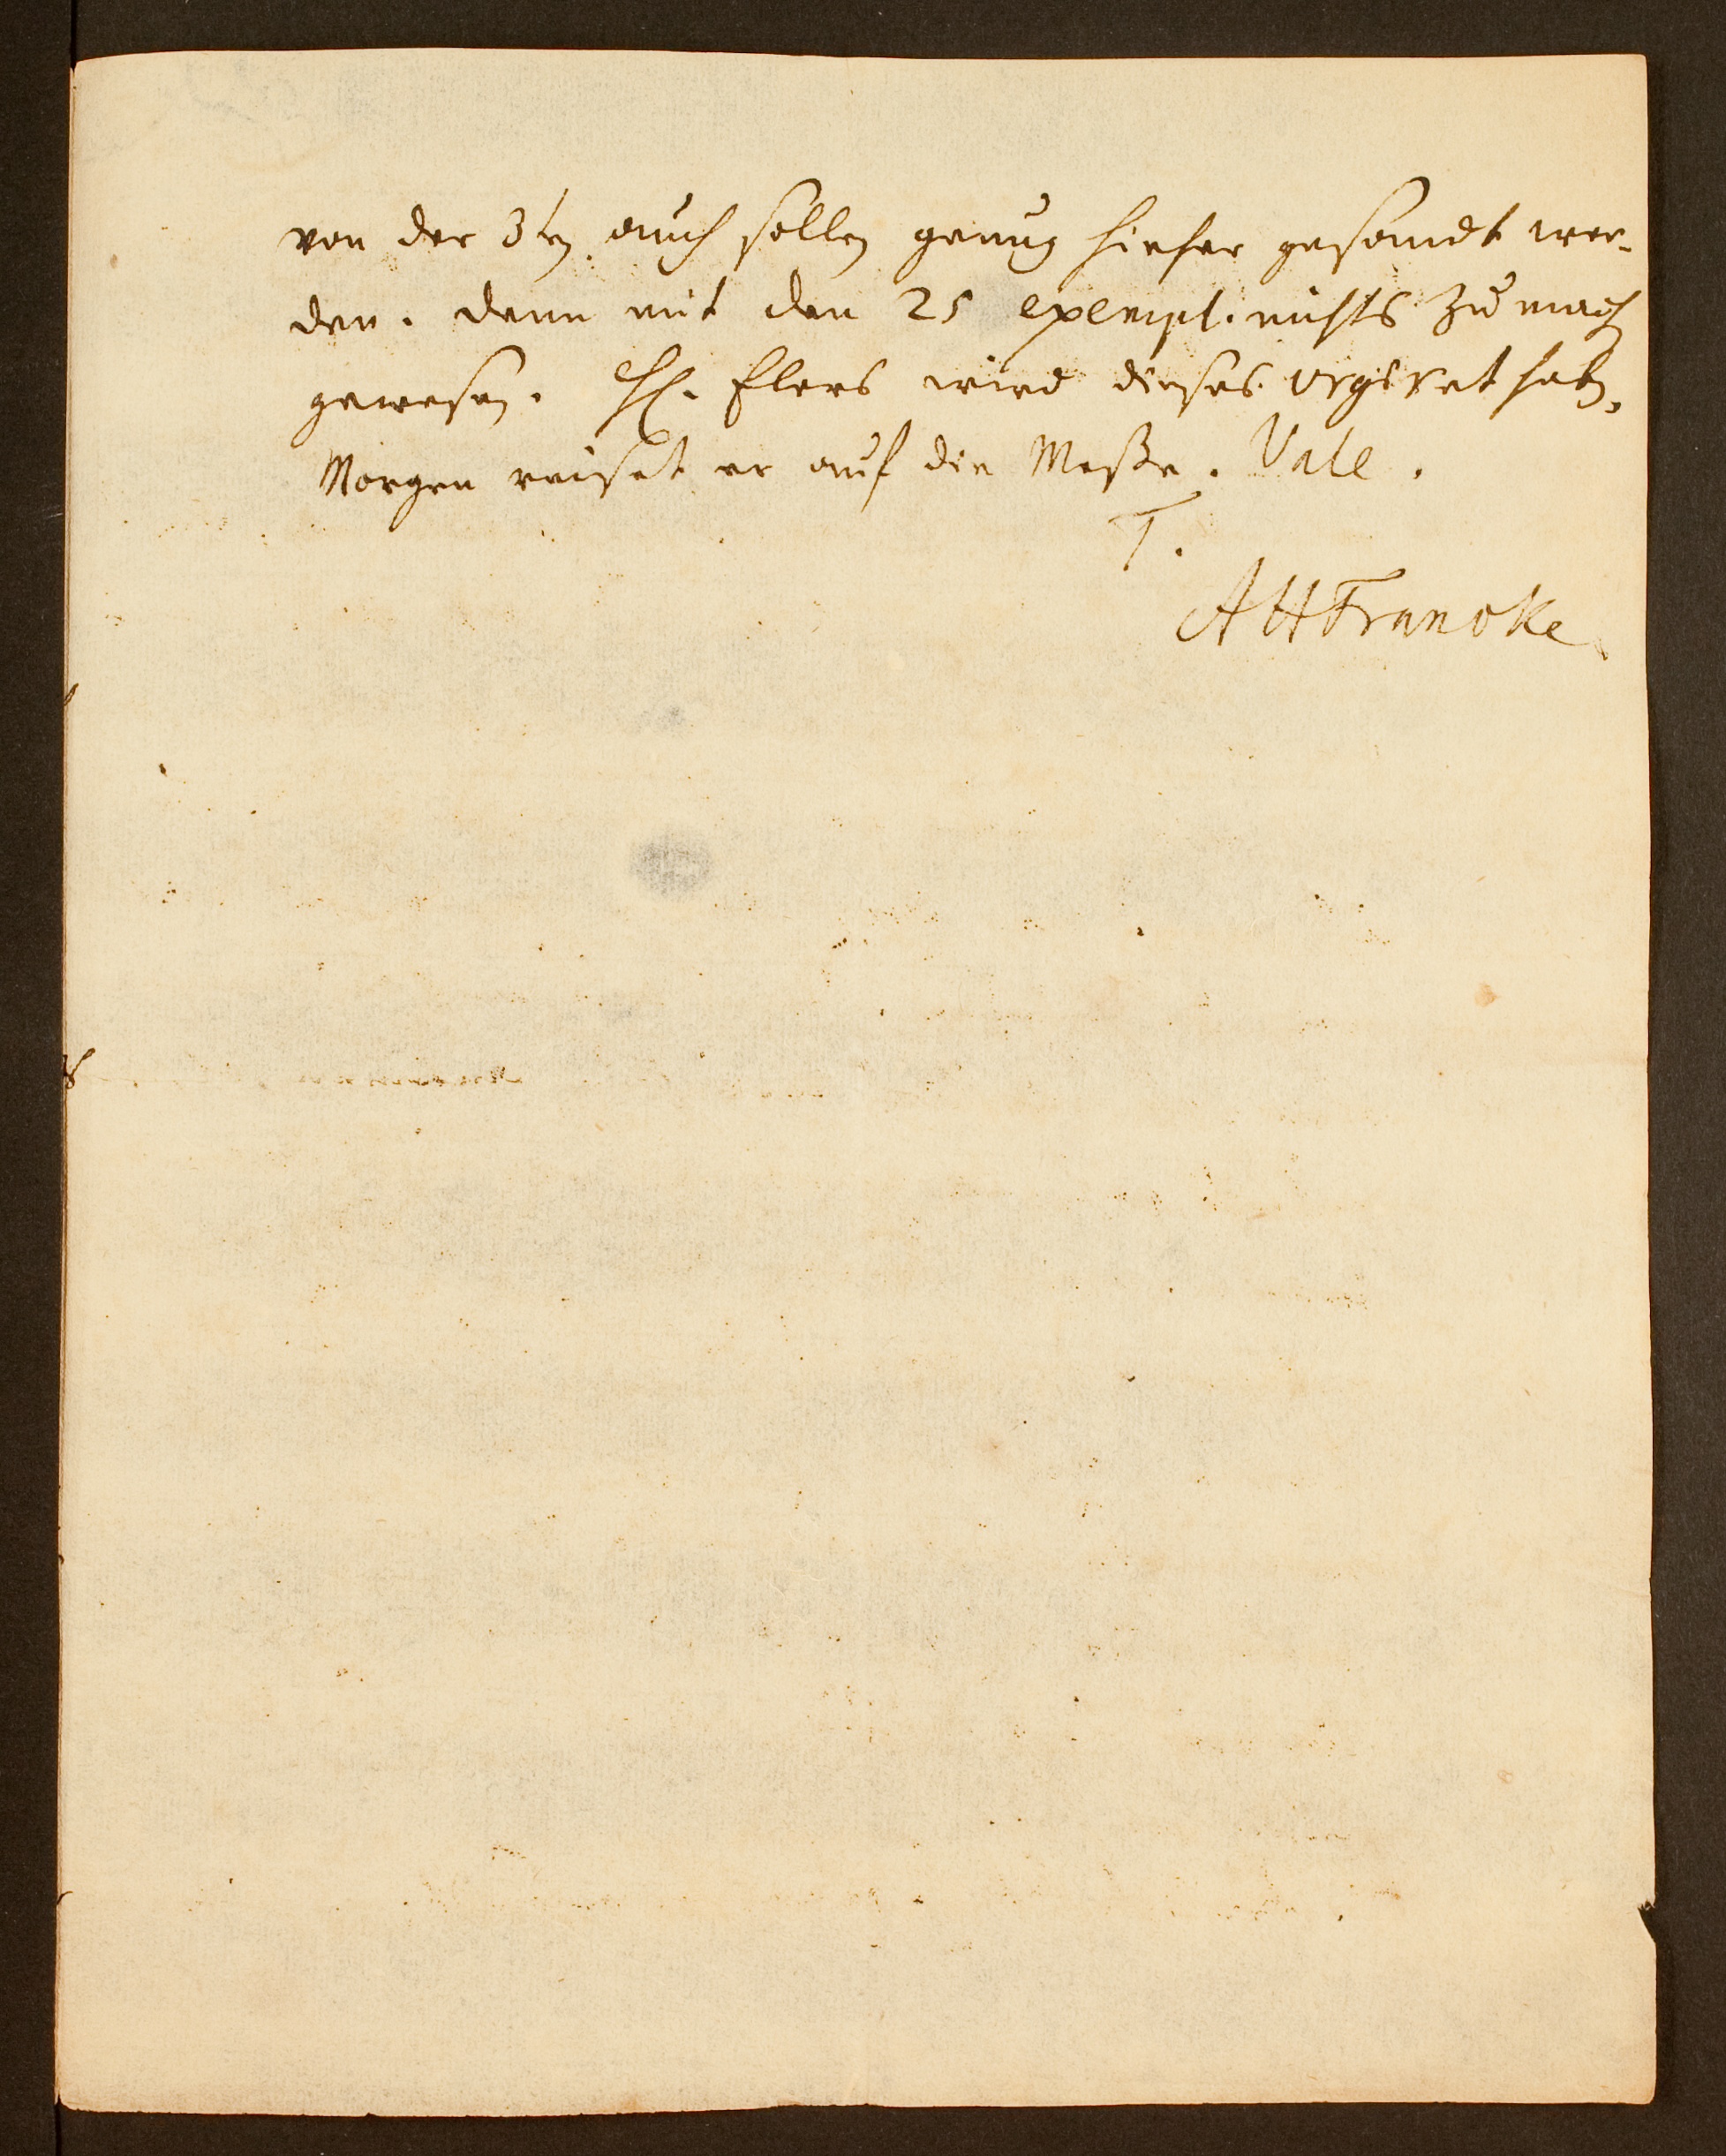 von der 3ten auch sollen genug hieher gesandt wer-
den. denn mit den 25 exempl. nichts zu machen
gewesen. H. Elers wird dieses urgiret haben,
Morgen reiset er auf die Meße. Vale.
T.
AHFrancke